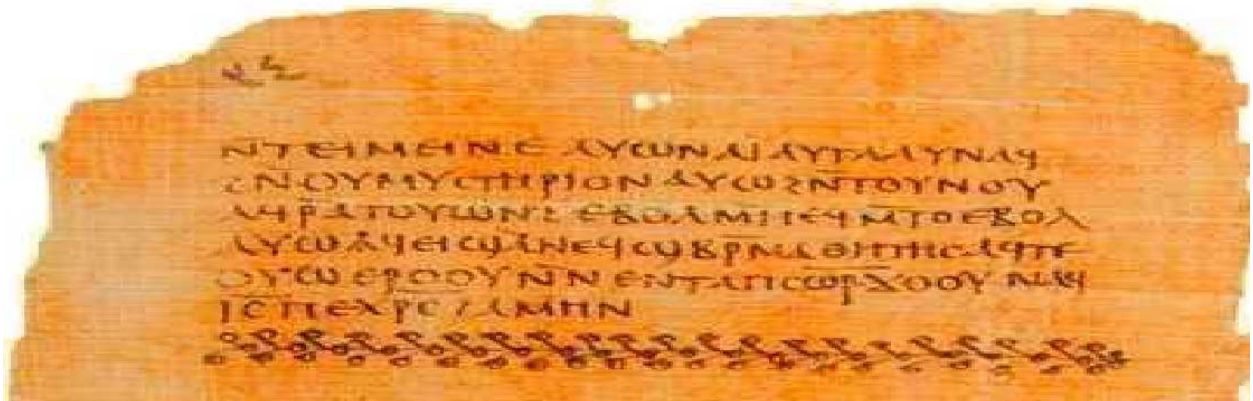 ⲛ̄ⲧⲉⲓⲙⲉⲓⲛⲉ ⲁⲩⲱ ⲛⲁⲓ̈ ⲁⲩⲧⲁⲁⲩ ⲛⲁϥ
ϩⲛ̄ⲟⲩⲙⲩⲥⲧⲏⲣⲓⲟⲛ ⲁⲩⲱ ϩⲛ̄ⲧⲟⲩⲛⲟⲩ
ⲁϥⲣ̄ⲁⲧⲟⲩⲱⲛϩ ⲉⲃⲟⲗ ⲙ̄ⲡⲉϥⲙ̄ⲧⲟ ⲉⲃⲟⲗ
ⲁⲩⲱ ⲁϥⲉⲓ ϣⲁ ⲛⲉϥϣⲃⲣ̄ⲙⲁⲑⲏⲧⲏⲥ ⲁϥⲧⲉ
ⲟⲩⲱ ⲉⲣⲟⲟⲩ ⲛ̄ⲛⲉⲛⲧⲁⲡⲥⲱ̄ⲣ̄ ϫⲟⲟⲩ ⲛⲁϥ
ⲓ̄ⲥ̄ ⲡⲉⲭ̄ⲣ̄ⲥ̄ / ⲁⲙⲏⲛ